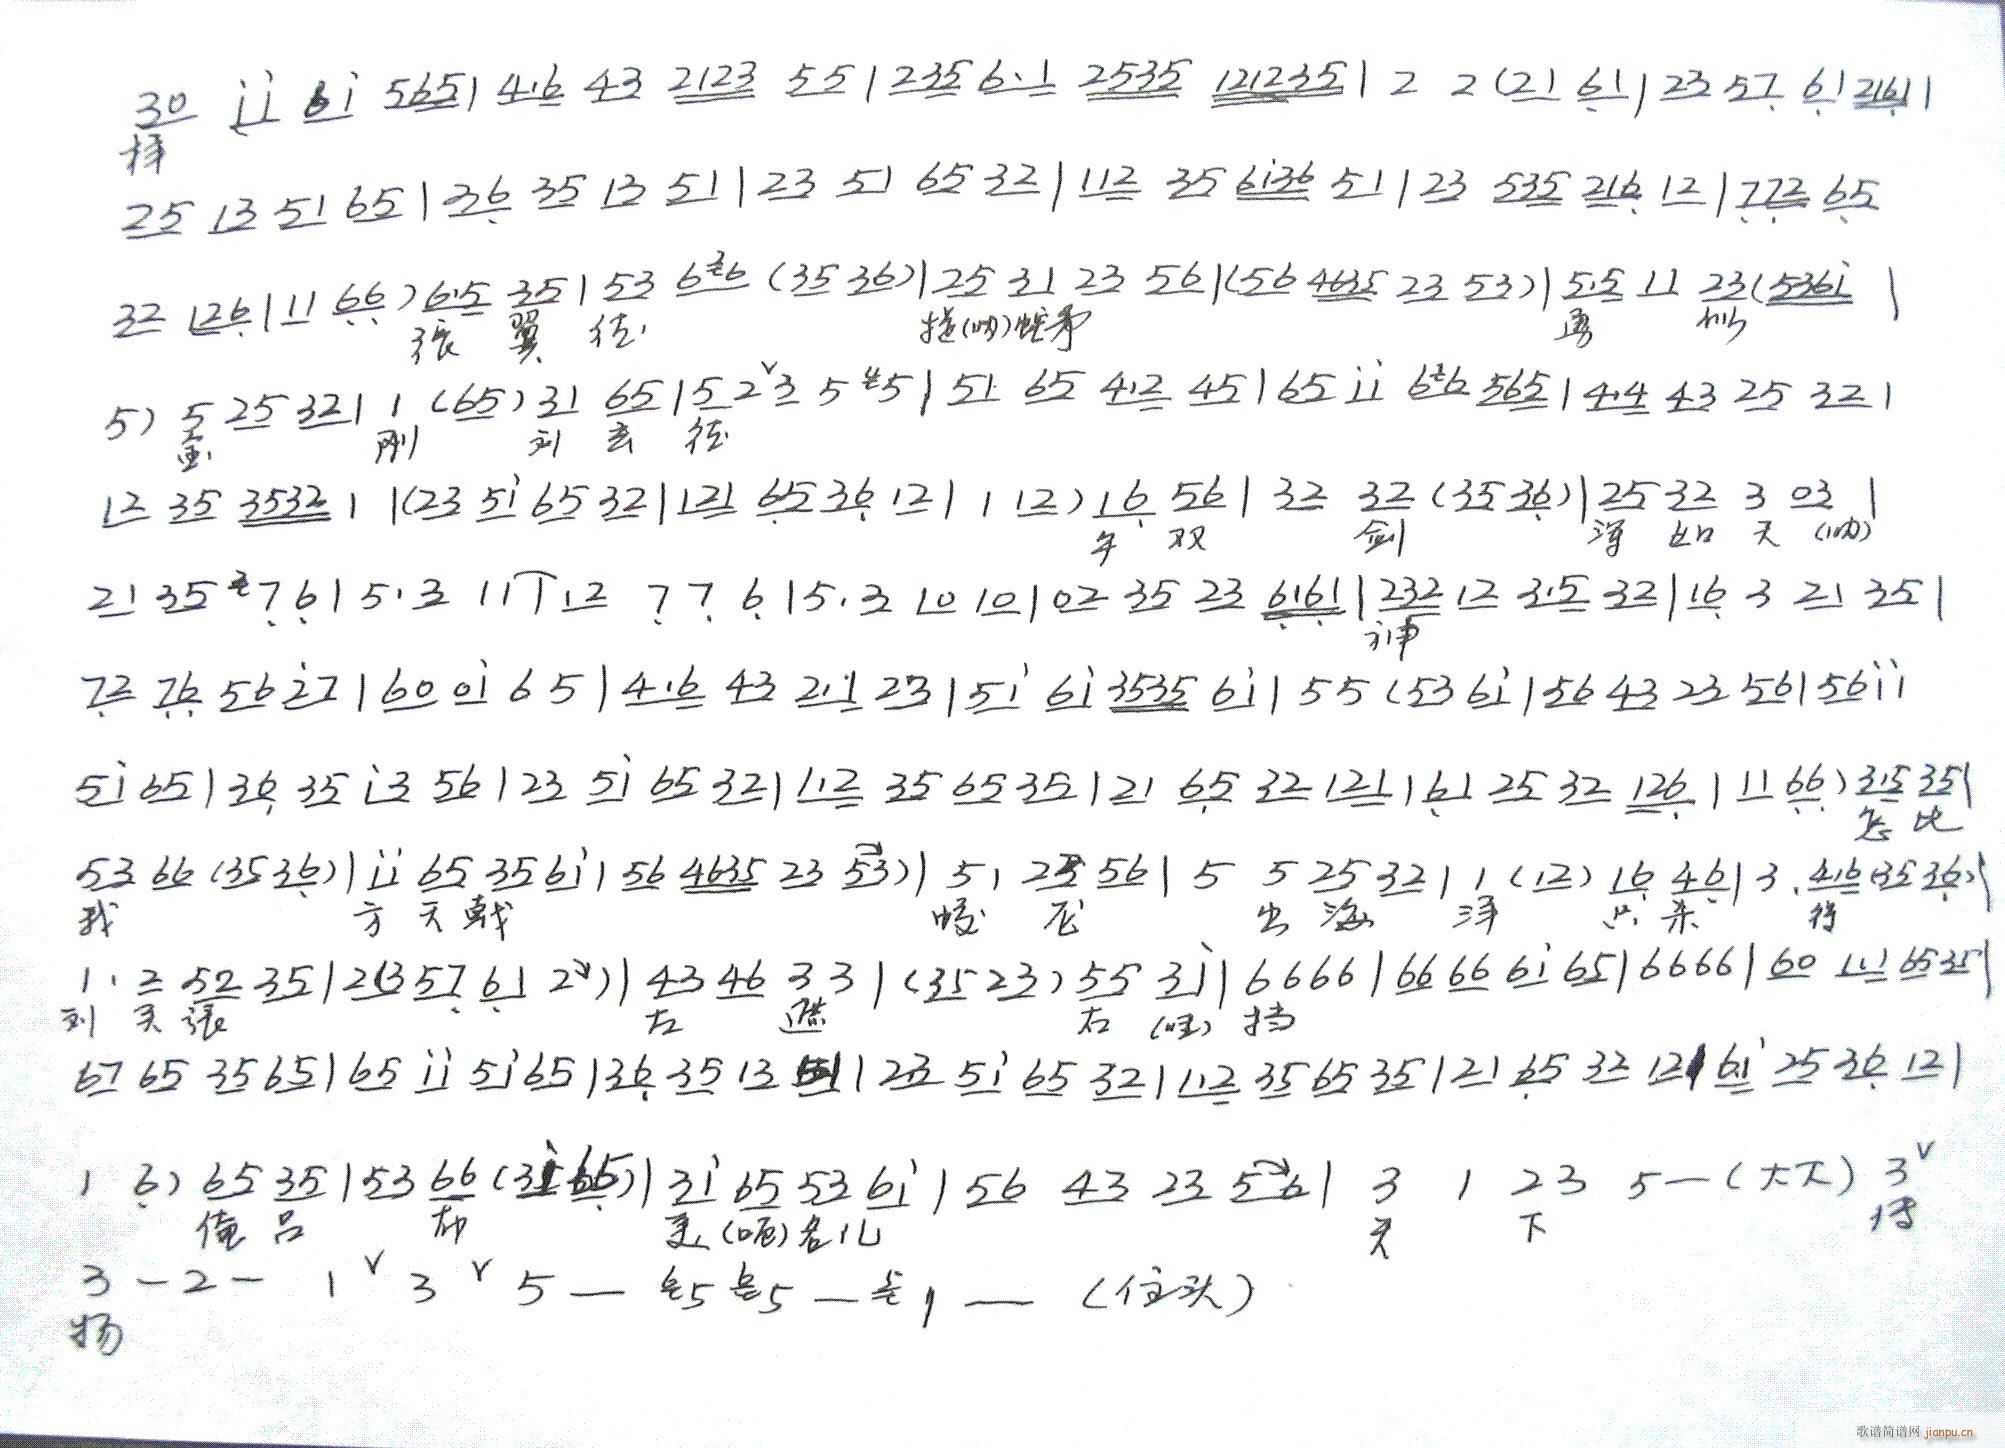 30 ii 6i 565 | 4.6 43 2123 55 | 235 6.1 2535 121235 | 2 2 (21 61 | 23 57 61 2161 |
择
25 13 51 65 | 36 35 13 51 | 23 51 65 32 | 112 35 6i36 51 | 23 535 216 12 | 772 65
32 126 | 11 66) 6.5 35 | 53 6 6 (35 36) | 25 31 23 56 | (56 4635 23 53) | 5.5 11 23 (536i |
张 翼 德 (呐)蛇矛 勇 似
5) 5 25 32 | 1 (65) 31 65 | 5 2 ∨ 3 5 5 | 51 65 4.2 45 | 65 ii 6 6 565 | 4.4 43 25 32 |
金 刚 刘 玄 德
12 35 3532 1 | (23 5i 65 32 | 121 65 36 12 | 1 12) 16 56 | 32 32 (35 36) | 25 32 3 03 |
双 剑 浑 如 天 (呐)
21 35 7 6 | 5.3 11 12 7 7 6 | 5.3 10 10 | 02 35 23 6161 | 232 12 3.5 32 | 16 3 21 35 |
神
72 76 56 i7 | 60 0i 65 | 4.6 43 2.1 23 | 5i 6i 3535 6i | 55 (53 6i | 56 43 23 56 | 56 ii
5i 65 | 36 35 i3 56 | 23 5i 65 32 | 1.2 35 65 35 | 21 65 32 121 | 61 25 32 126 | 11 66) 3.5 35 |
怎 比
53 66 (35 36) | ii 65 35 6i | 56 4635 23 53) | 51 23 56 | 5 5 25 32 | 1 (12) 16 46 | 3. 4.6 (35 36) |
我 方 天 戟 蛟 龙 出 海 洋 只 杀 得
1. 2 52 35 | 2 (3 57 61 2) | 43 46 33 | (35 23) 55 3i | 6666 | 66 66 6i 65 | 6666 | 60 111 6535 |
刘 关 张 左 遮 右 (哇) 挡
67 65 35 65 | 65 ii 5i 65 | 36 35 13 51 | 23 5i 65 32 | 1.2 35 65 35 | 21 65 32 12 | 6i 25 36 12 |
1 6) 65 35 | 53 66 (3i 65) | 3i 65 53 6i | 56 43 23 56 | 3 1 23 5 — (大大) 3 ∨
俺 吕 布 美 (呃) 名 儿 天 下 传
3 — 2 — 1 ∨ 3 ∨ 5 — 5 5 — 1 — (住头)
扬
歌谱简谱网 jianpu.cn